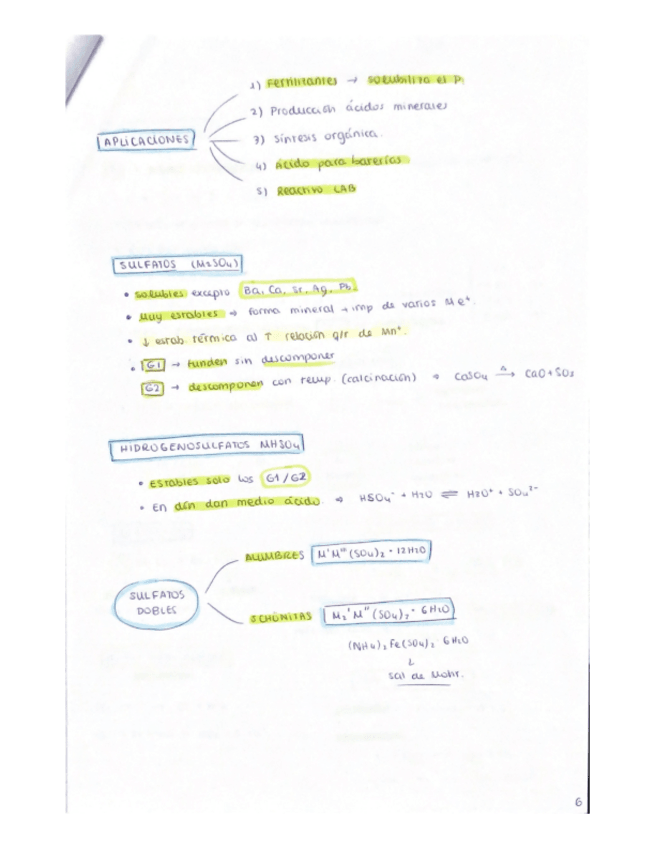 APLICACIONES
1) Fertilizantes → solubiliza el P.
2) Producción ácidos minerales
3) síntesis orgánica.
4) Ácido para baterías
5) Reactivo LAB
SULFATOS (M₂SO₄)
• solubles excepto Ba, Ca, Sr, Ag, Pb.
• Muy estables → forma mineral → imp de varios Me⁺.
• ↓ estab. térmica al ↑ relación q/r de Mⁿ⁺.
• G1 → funden sin descomponer
G2 → descomponen con temp (calcinación) → CaSO₄ →Δ CaO + SO₃
HIDROGENOSULFATOS MHSO₄
• Estables solo los G1/G2
• En dín dan medio ácido. → HSO₄⁻ + H₂O ⇌ H₃O⁺ + SO₄²⁻
SULFATOS DOBLES
ALUMBRES M'M'''(SO₄)₂ · 12H₂O
SCHÖNITAS M₂'M''(SO₄)₂ · 6H₂O
(NH₄)₂Fe(SO₄)₂ 6H₂O
↓
sal de Mohr.
6